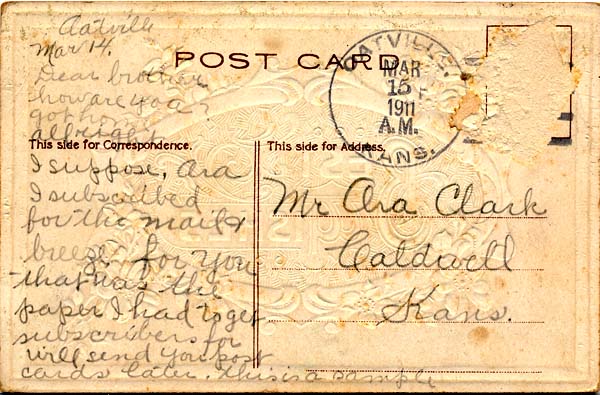 Oatville
Mar 14.
POST CARD
OATVILLE.
MAR
15
1911
A.M.
KANS.
Dear brother
how are you
got home
allright
This side for Correspondence.
I suppose, Ora
I subscribed
for the mail &
breeze for you
that was the
paper I had to get
subscribers for
will send you post
cards later. this is a sample
This side for Address.
Mr Ora Clark
Caldwell
Kans.